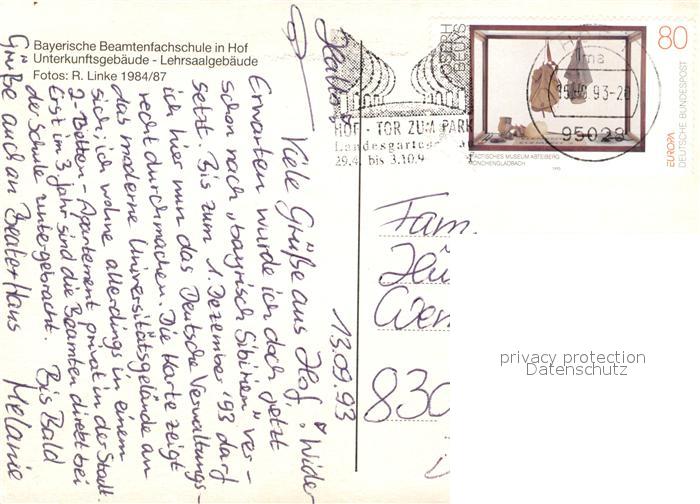 Bayerische Beamtenfachschule in Hof
Unterkunftsgebäude - Lehrsaalgebäude
Fotos: R. Linke 1984/87
Hallo!
13.09.93
Viele Grüße aus Hof. Wider
Erwarten wurde ich doch jetzt
schon nach "bayrisch Sibirien" ver-
setzt. Bis zum 1. Dezember '93 darf
ich hier nun das Deutsche Verwaltungs-
recht durchmachen. Die Karte zeigt
das moderne Universitätsgelände an
sich; ich wohne allerdings in einem
2-Betten Apartement privat in der Stadt.
Erst im 3 Jahr sind die Beamten direkt bei
der Schule unte gebracht. Bis Bald
Grüße auch an Beate + Haus Melanie
HOF - TOR ZUM PARK
Landesgarten
29.4. bis 3.10.9
JOSEPH BEUYS
80
DEUTSCHE BUNDESPOST
EUROPA
STÄDTISCHES MUSEUM ABTEIBERG
MÖNCHENGLADBACH
1993
93-20
95028
Fam.
830
privacy protection
Datenschutz